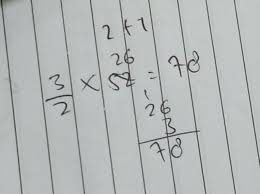 2+1
26
3/2 × 52 = 78
26
3
78